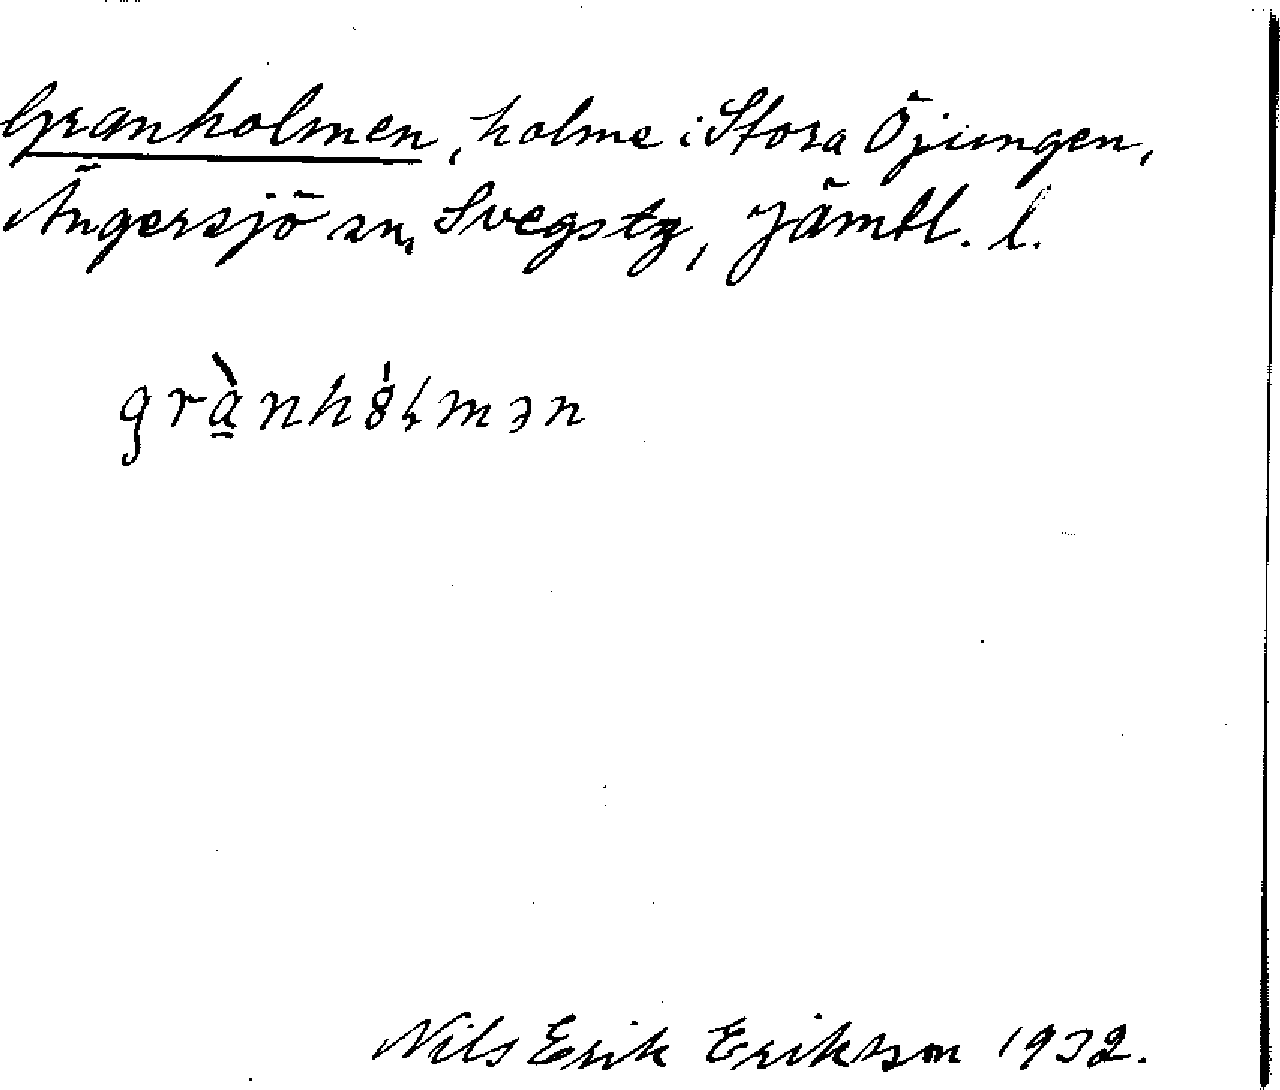 Granholmen, holme i Stora Öjungen,
Ängersjö sn, Svegs tg, Jämtl. l.
Nils Erik Erikson 1932.